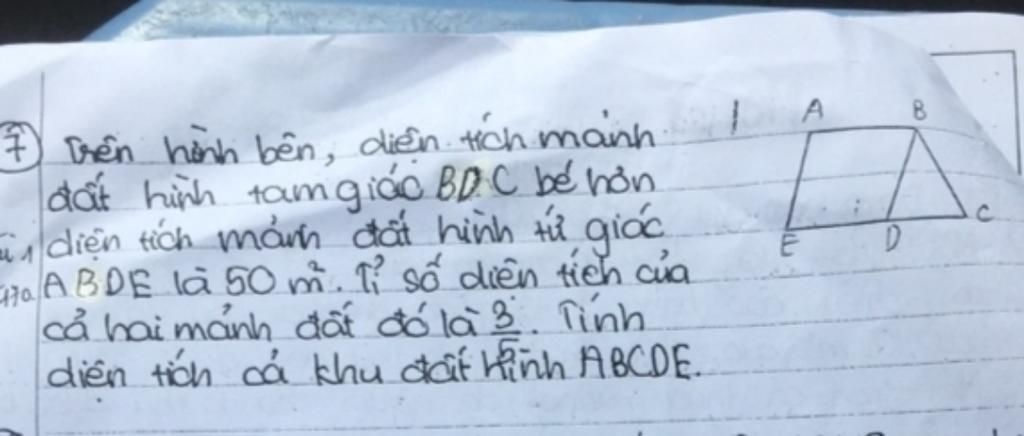 7 Trên hình bên, diện tích mảnh
đất hình tam giác BDC bé hơn
diện tích mảnh đất hình tứ giác
ABDE là 50 m². Tỉ số diện tích của
cả hai mảnh đất đó là 3/5. Tính
diện tích cả khu đất hình ABCDE.
A B
E D C